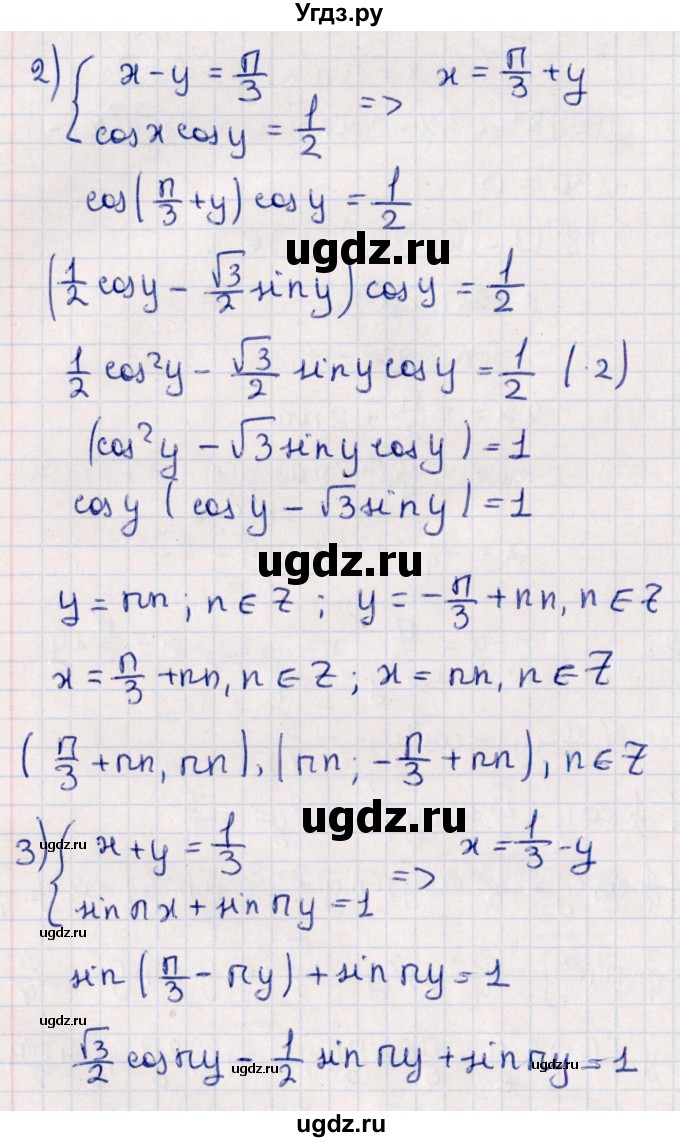 Угдз.ру
2) { x - y = π/3 => x = π/3 + y
cos x cos y = 1/2
cos(π/3 + y) cos y = 1/2
ugdz.ru
(1/2 cos y - √3/2 sin y) cos y = 1/2
1/2 cos²y - √3/2 sin y cos y = 1/2 (·2)
(cos²y - √3 sin y cos y) = 1
cos y (cos y - √3 sin y) = 1
ugdz.ru
y = πn; n ∈ Z; y = -π/3 + πn, n ∈ Z
x = π/3 + πn, n ∈ Z; x = πn, n ∈ Z
(π/3 + πn, πn), (πn; -π/3 + πn), n ∈ Z
ugdz.ru
3) { x + y = 1/3 => x = 1/3 - y
ugdz.ru
sin πx + sin πy = 1
ugdz.ru
sin (π/3 - πy) + sin πy = 1
ugdz.ru
√3/2 cos πy - 1/2 sin πy + sin πy = 1
ugdz.ru
ugdz.ru